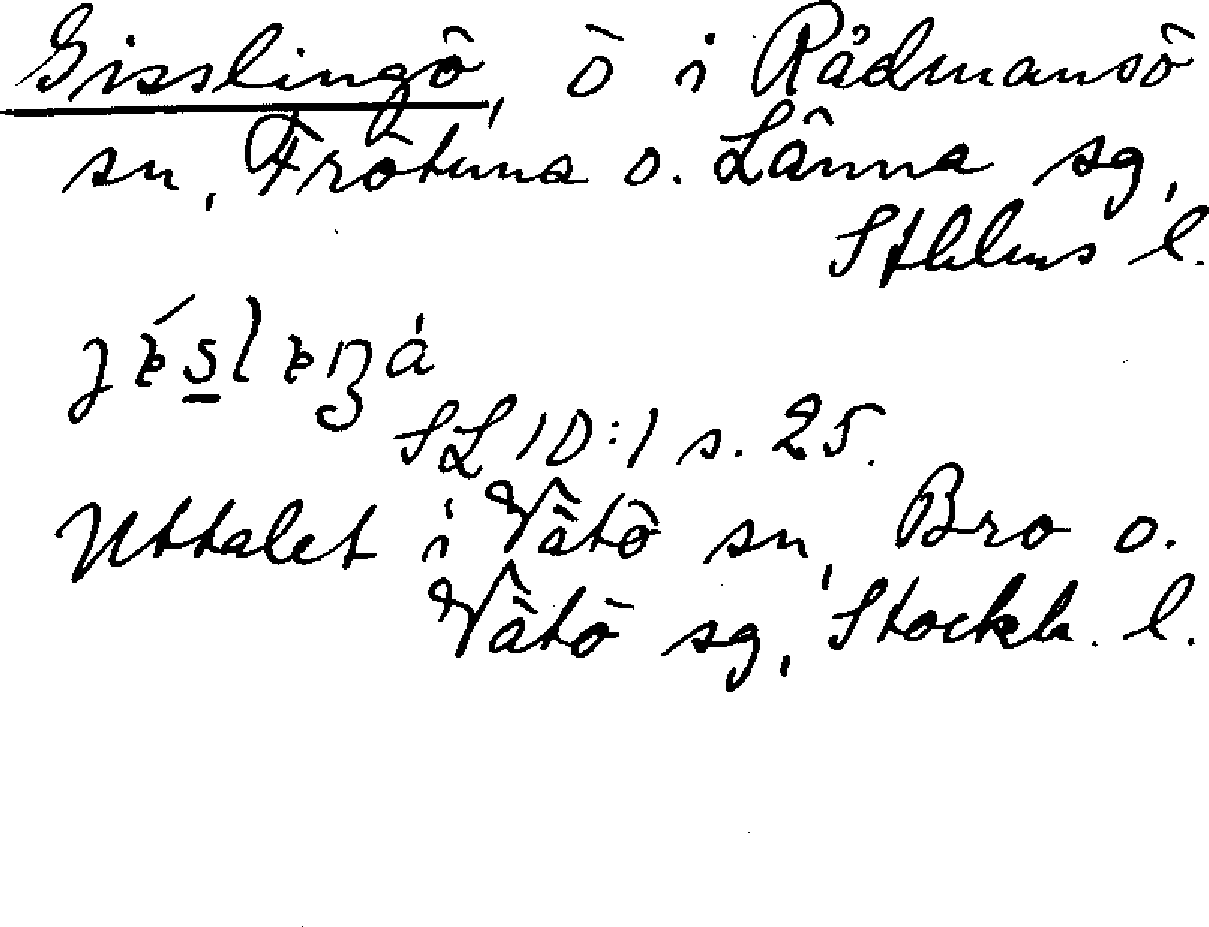 Gisslingö, ö i Rådmansö
sn, Frötuna o. Länna sg,
Sthlms l.
SL 10:1 s. 25.
Uttalet i Vätö sn, Bro o.
Vätö sg, Stockh. l.